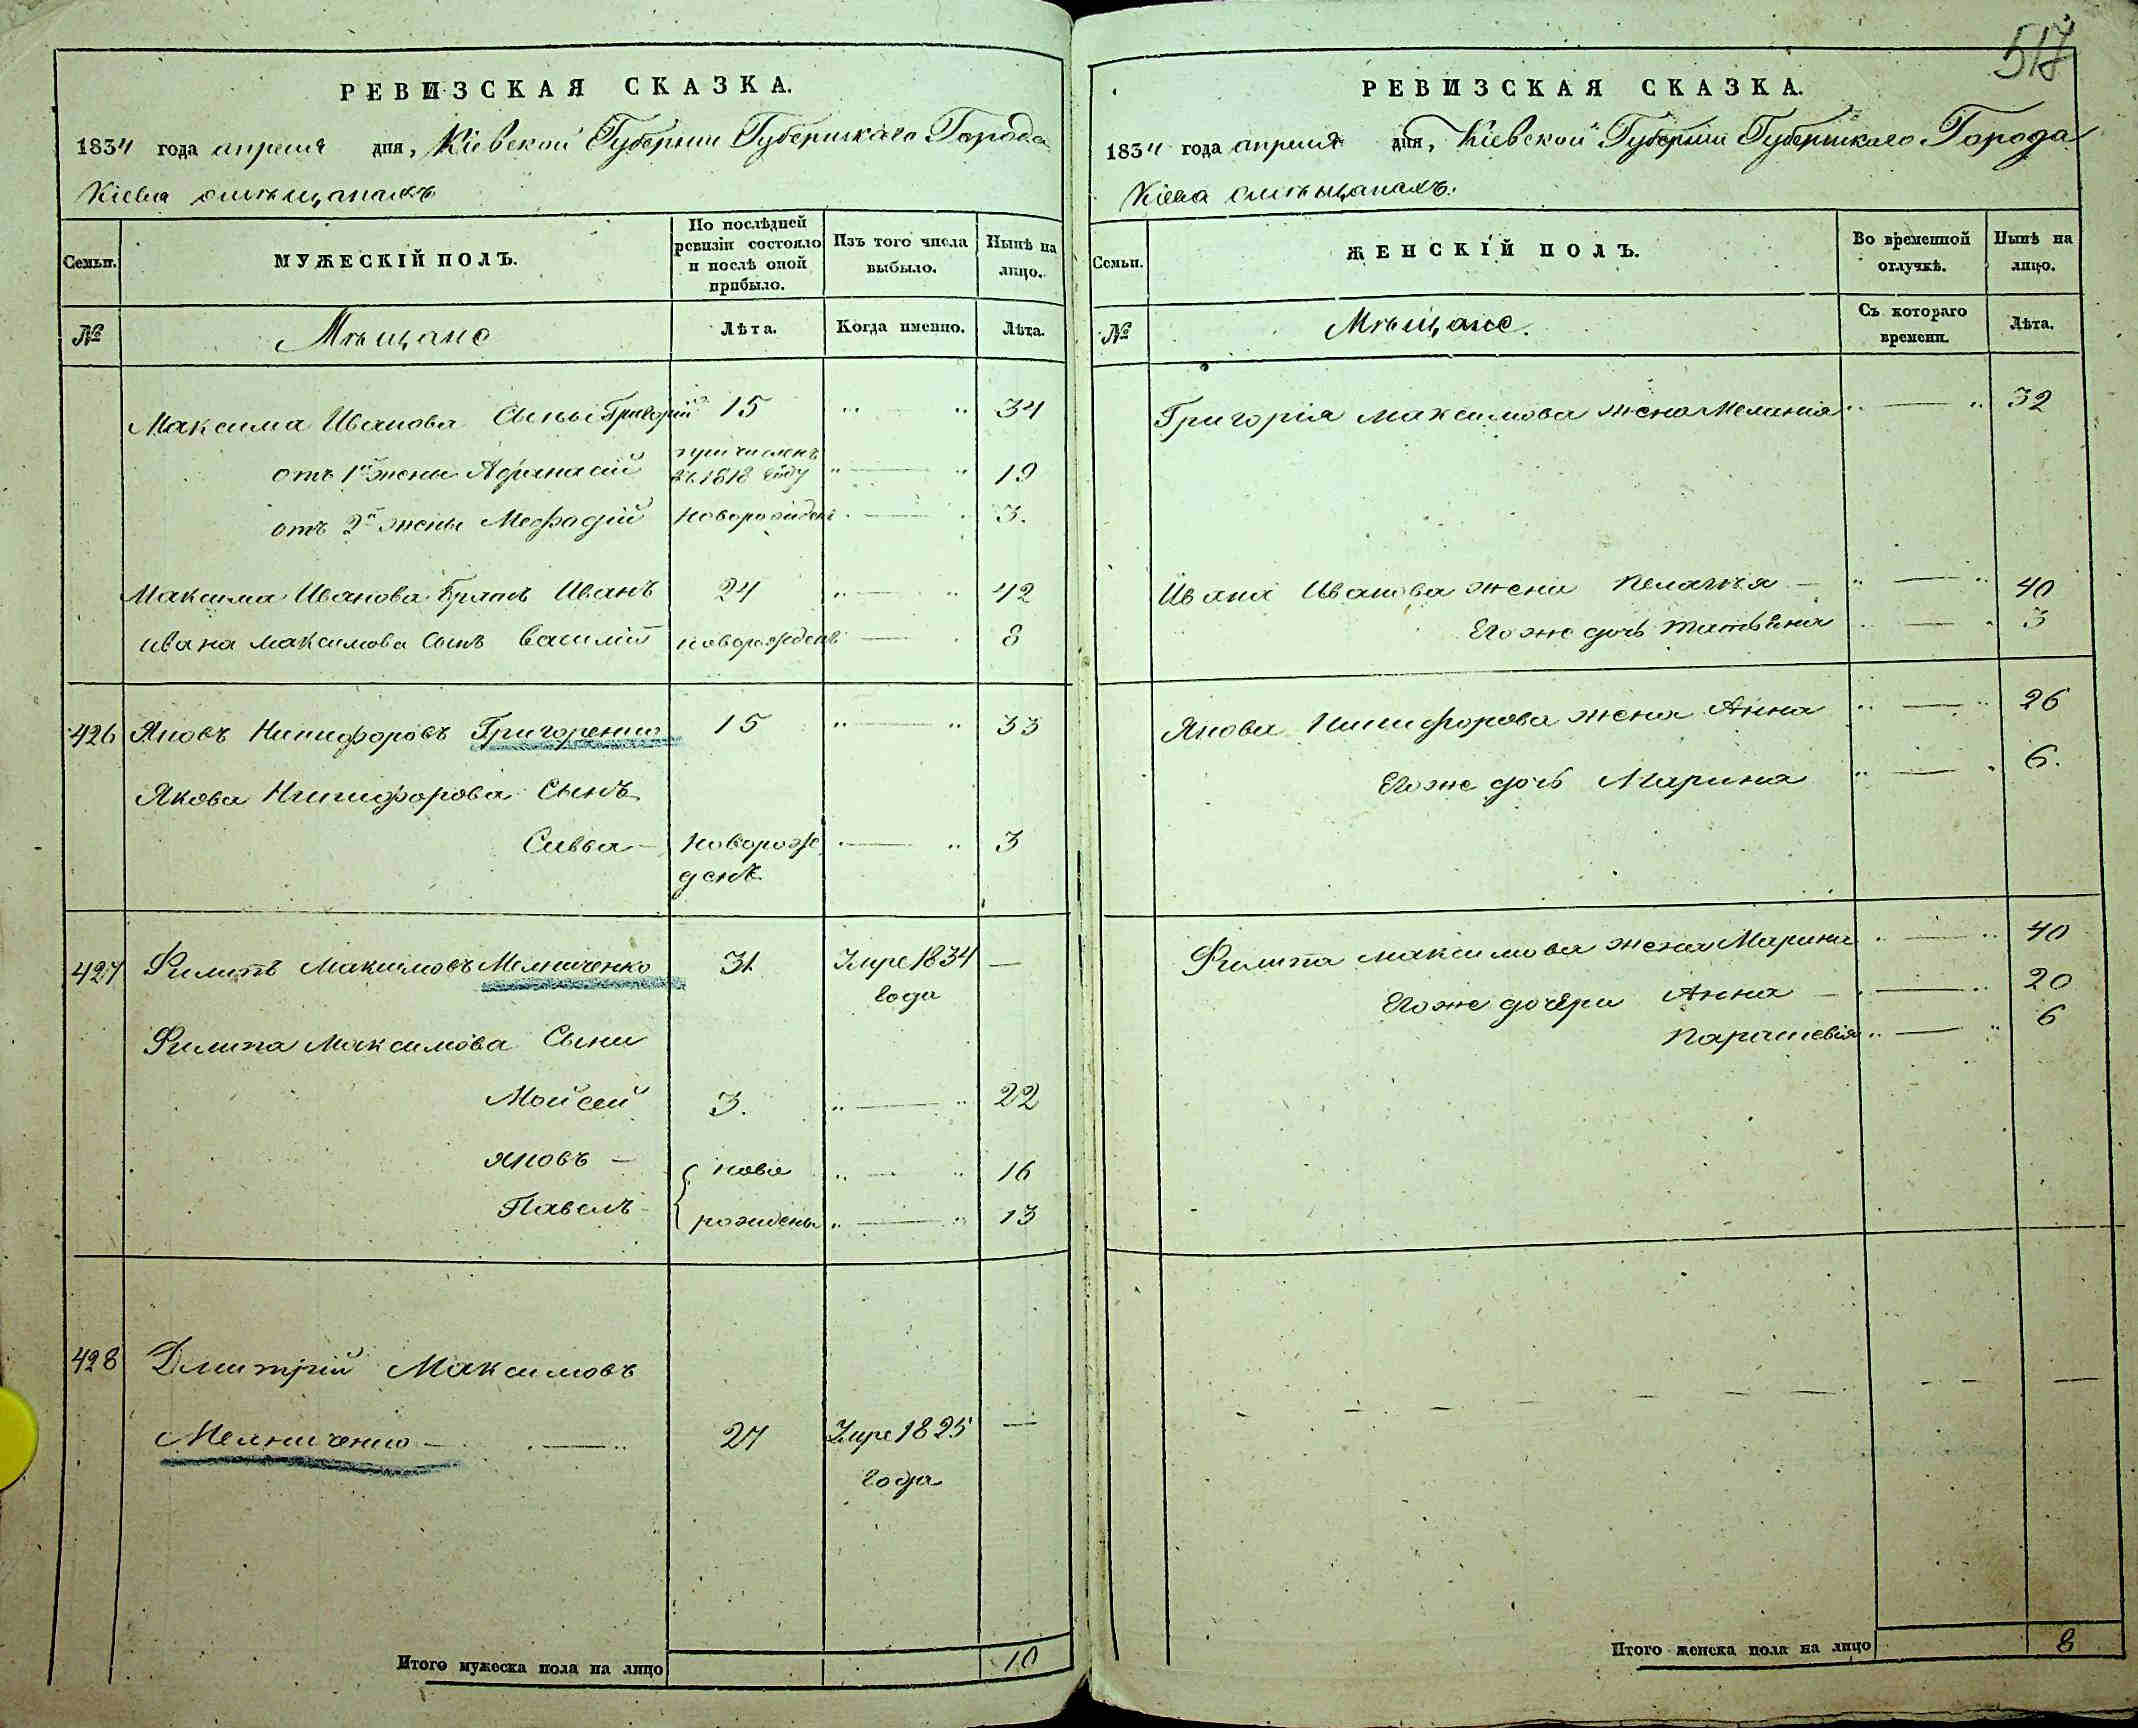 РЕВИЗСКАЯ СКАЗКА.
1834 года апреля дня, Кіевской Губерніи Губернскаго Города
Кіева омѣщанахъ
Семьи.
МУЖЕСКІЙ ПОЛЪ.
По послѣдней ревизіи состояло и послѣ оной прибыло.
Изъ того числа выбыло.
Нынѣ на лицо.
№
Мѣщане
Лѣта.
Когда именно.
Лѣта.
Максима Иванова Сыны Григорій 15 34
отъ 1й жены Афанасій причисленъ въ 1818 году 19
отъ 2й жены Мефодій новорожденъ 3.
Максима Иванова братъ Иванъ 24 42
Ивана Максимова Сынъ Василій новорожденъ 8
426 Яковъ Никифоровъ Григоренко 15 33
Якова Никифорова Сынъ
Савва новорож 3
денъ
427 Филипъ Максимовъ Мелниченко 31 Умре 1834 —
года
Филипа Максимова Сыны
Мойсей 3. 22
Яковъ — ново 16
Павелъ - рождены 13
428 Дмитрій Максимовъ
Мелниченко — 27 Умре 1825 —
года
Итого мужеска пола на лицо 10
517
РЕВИЗСКАЯ СКАЗКА.
1834 года апреля дня, Кіевской Губерніи Губернскаго Города
Кіева омѣщанахъ.
Семьи.
ЖЕНСКІЙ ПОЛЪ.
Во временной отлучкѣ.
Нынѣ на лицо.
№
Мѣщане.
Съ котораго времени.
Лѣта.
Григорія Максимова жена Меланія 32
Ивана Иванова жена Пелагея — 40
Его же дочь Татьяна 3
Якова Никифорова жена Анна 26
Его же дочь Марина 6.
Филипа Максимова жена Марина 40
Его же дочери Анна — 20
Параскевія 6
Итого женска пола на лицо 8